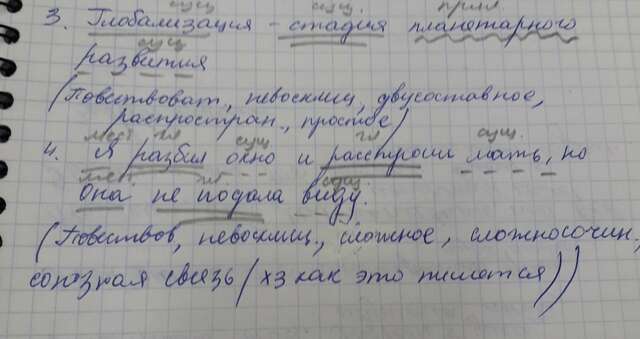 сущ. сущ. прил.
3. Глобализация - стадия планетарного
сущ.
развития
(Повествоват, невосклиц, двусоставное,
распростран., простое)
мест гл сущ. гл сущ.
4. Я разбил окно и расстроил мать, но
мест гл сущ.
она не подала виду.
(Повествов, невосклиц., сложное, сложносочин,
союзная связь (хз как это пишется))